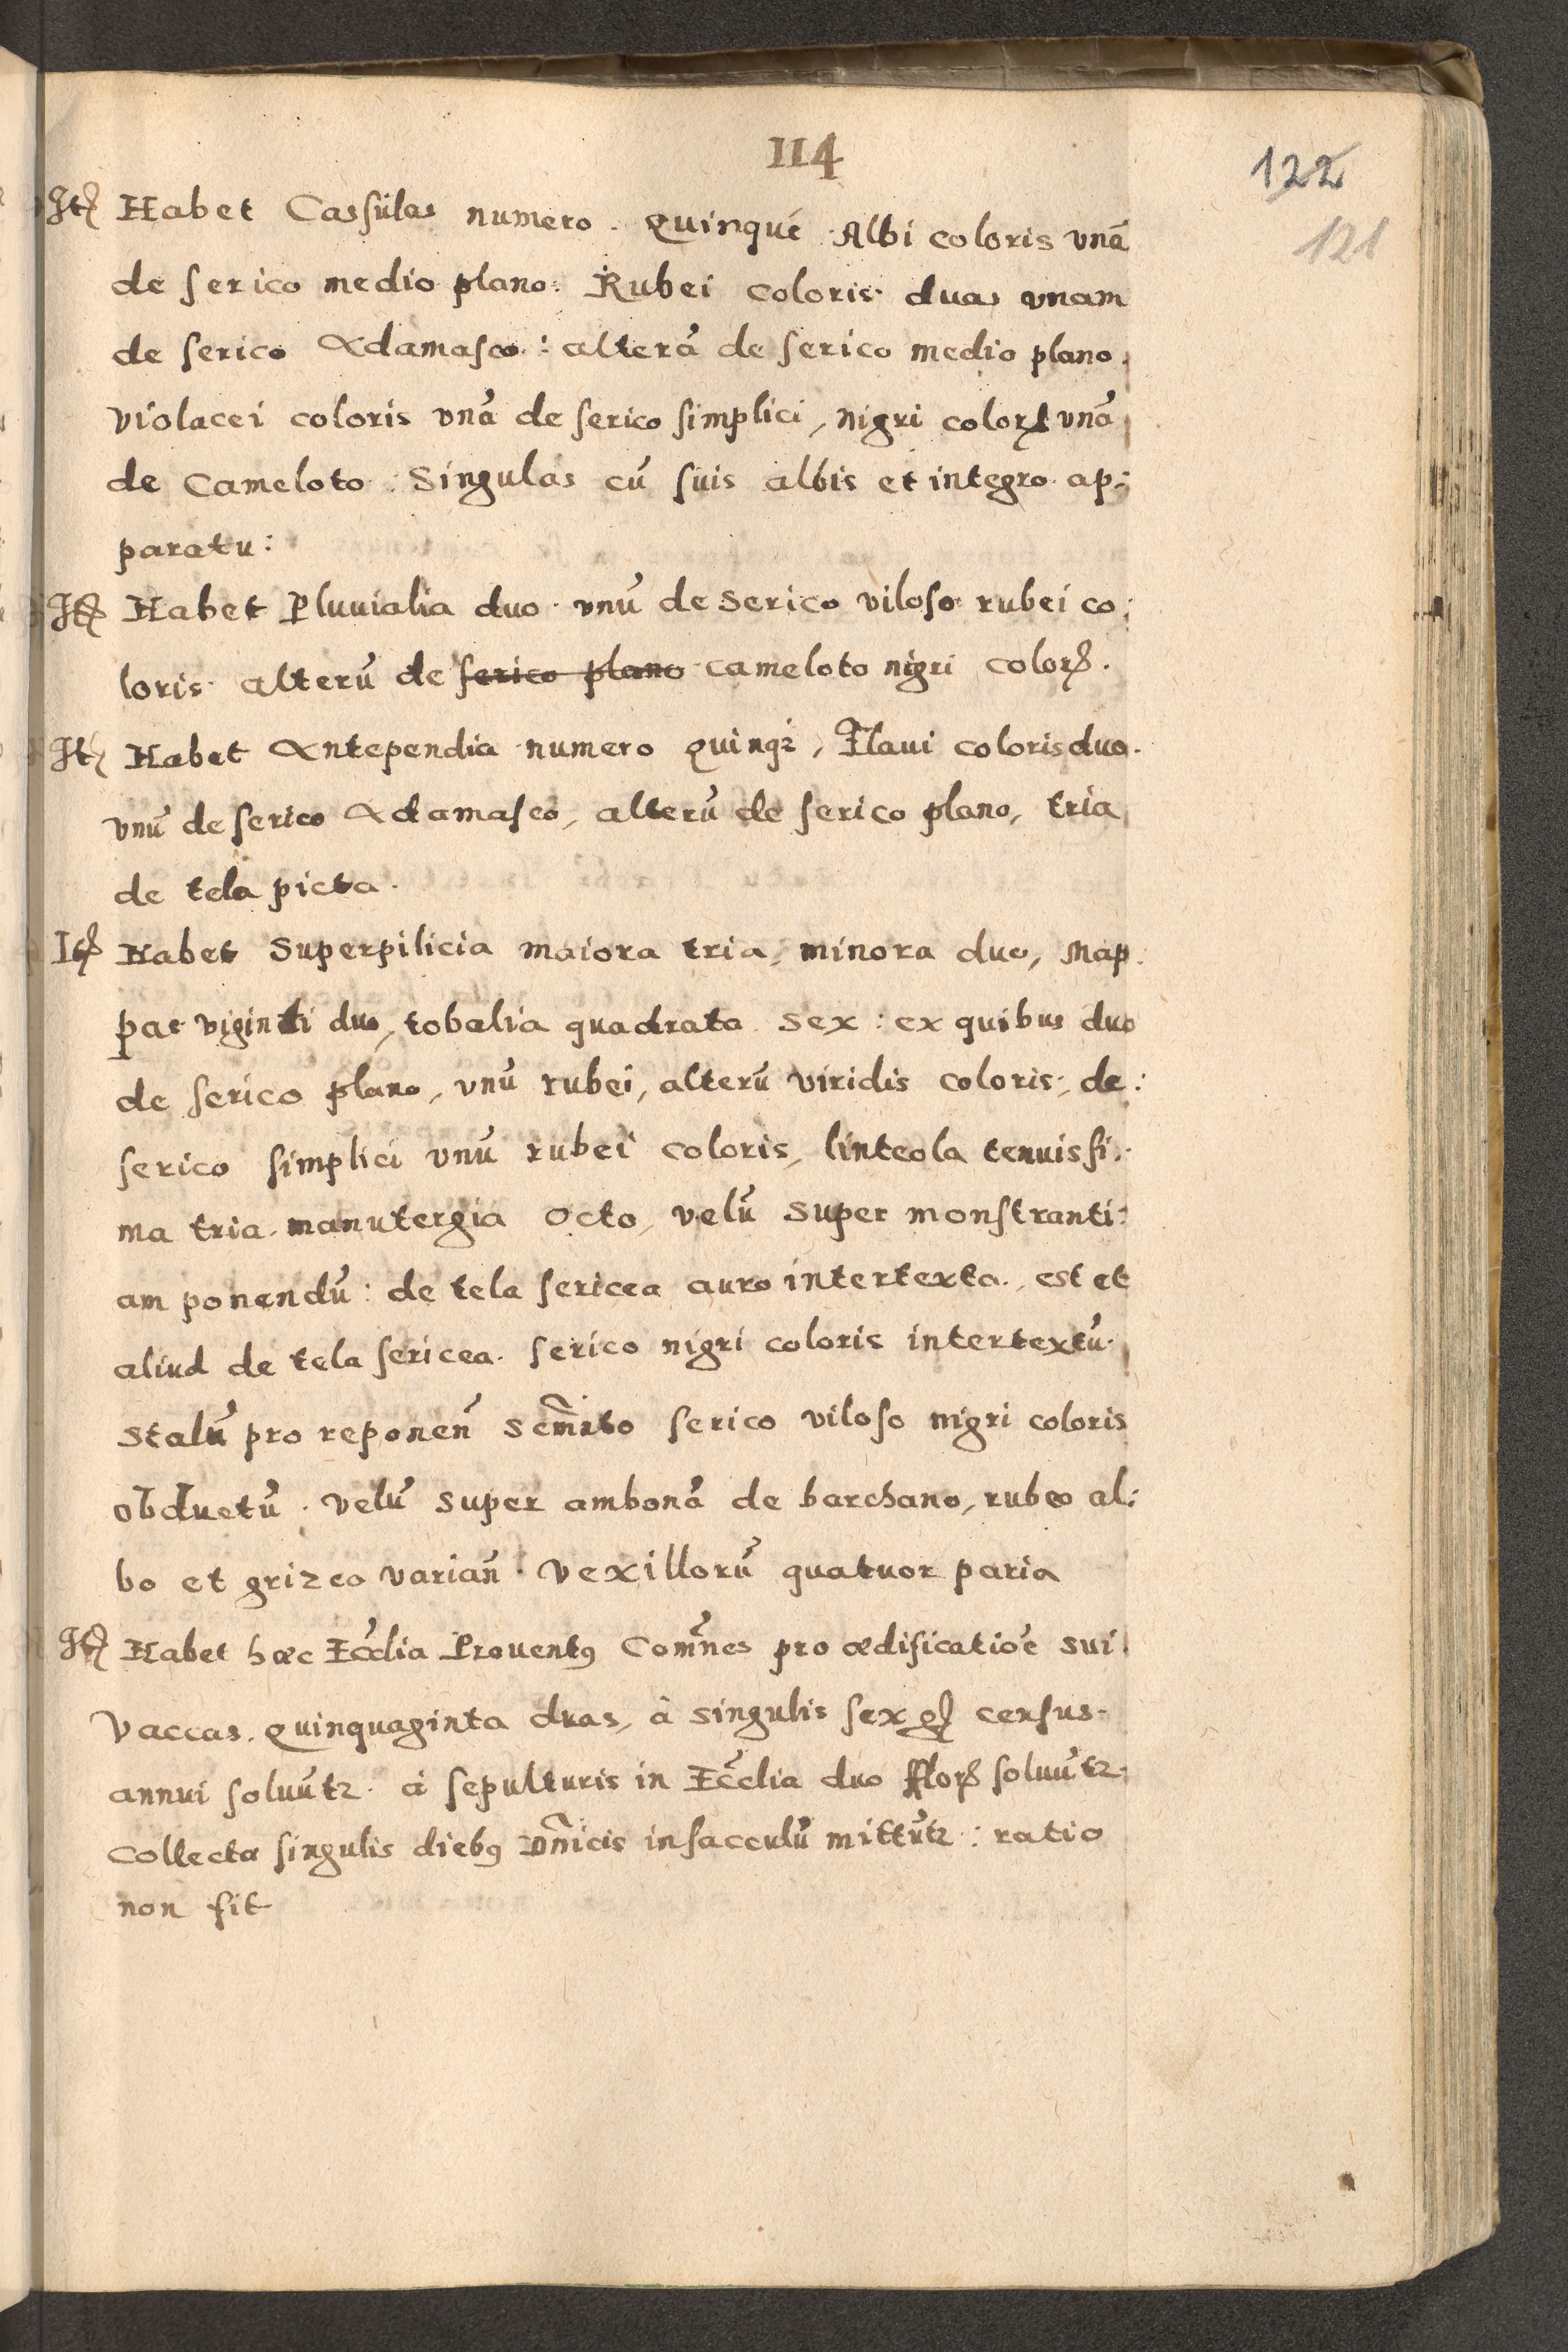 114
122
121
Itē Habet Cassulas numero. Quinque Albi coloris vnā
de serico medio plano: Rubei coloris duas vnam
de serico Adamasco: alterā de serico medio plano.
Violacei coloris vnā de serico simplici, nigri coloris vnā
de Cameloto: Singulas cū suis albis et integro ap:
paratu:
Itē Habet Pluuialia duo vnū de serico viloso rubei co:
loris alterū de serico plano cameloto nigri coloris.
Itē Habet Antependia numero quinqȝ, Flaui coloris duo.
vnū de serico Adamasco, alterū de serico plano, tria
de tela picta.
Itē Habet Superpilicia maiora tria, minora duo, Map
pas viginti duo, tobalia quadrata sex: ex quibus duo
de serico plano, vnū rubei, alterū viridis coloris, de:
serico simplici vnū rubei coloris, linteola tenuissi.
ma tria. manutergia octo, velū super monstranti:
am ponendū: de tela sericea auro intertexta., est et
aliud de tela sericea. serico nigri coloris intertextū.
Stalū pro reponeñ Scm̃to serico viloso nigri coloris
obductū. velū super ambonā de barchano, rubeo al:
bo et grizeo varian̄. Vexillorū quatuor paria
Itē Habet hæc Eccl̄ia Prouentꝰ Com̄nes pro ædificatiōe sui.
Vaccas. quinquaginta duas, à singulis sex gꝭ census.
annui soluūtꝛ. à sepulturis in Eccl̄ia duo florꝭ soluūtꝛ.
Collecta singulis diebꝰ Dn̄icis in sacculū mittūtꝛ: ratio
non fit